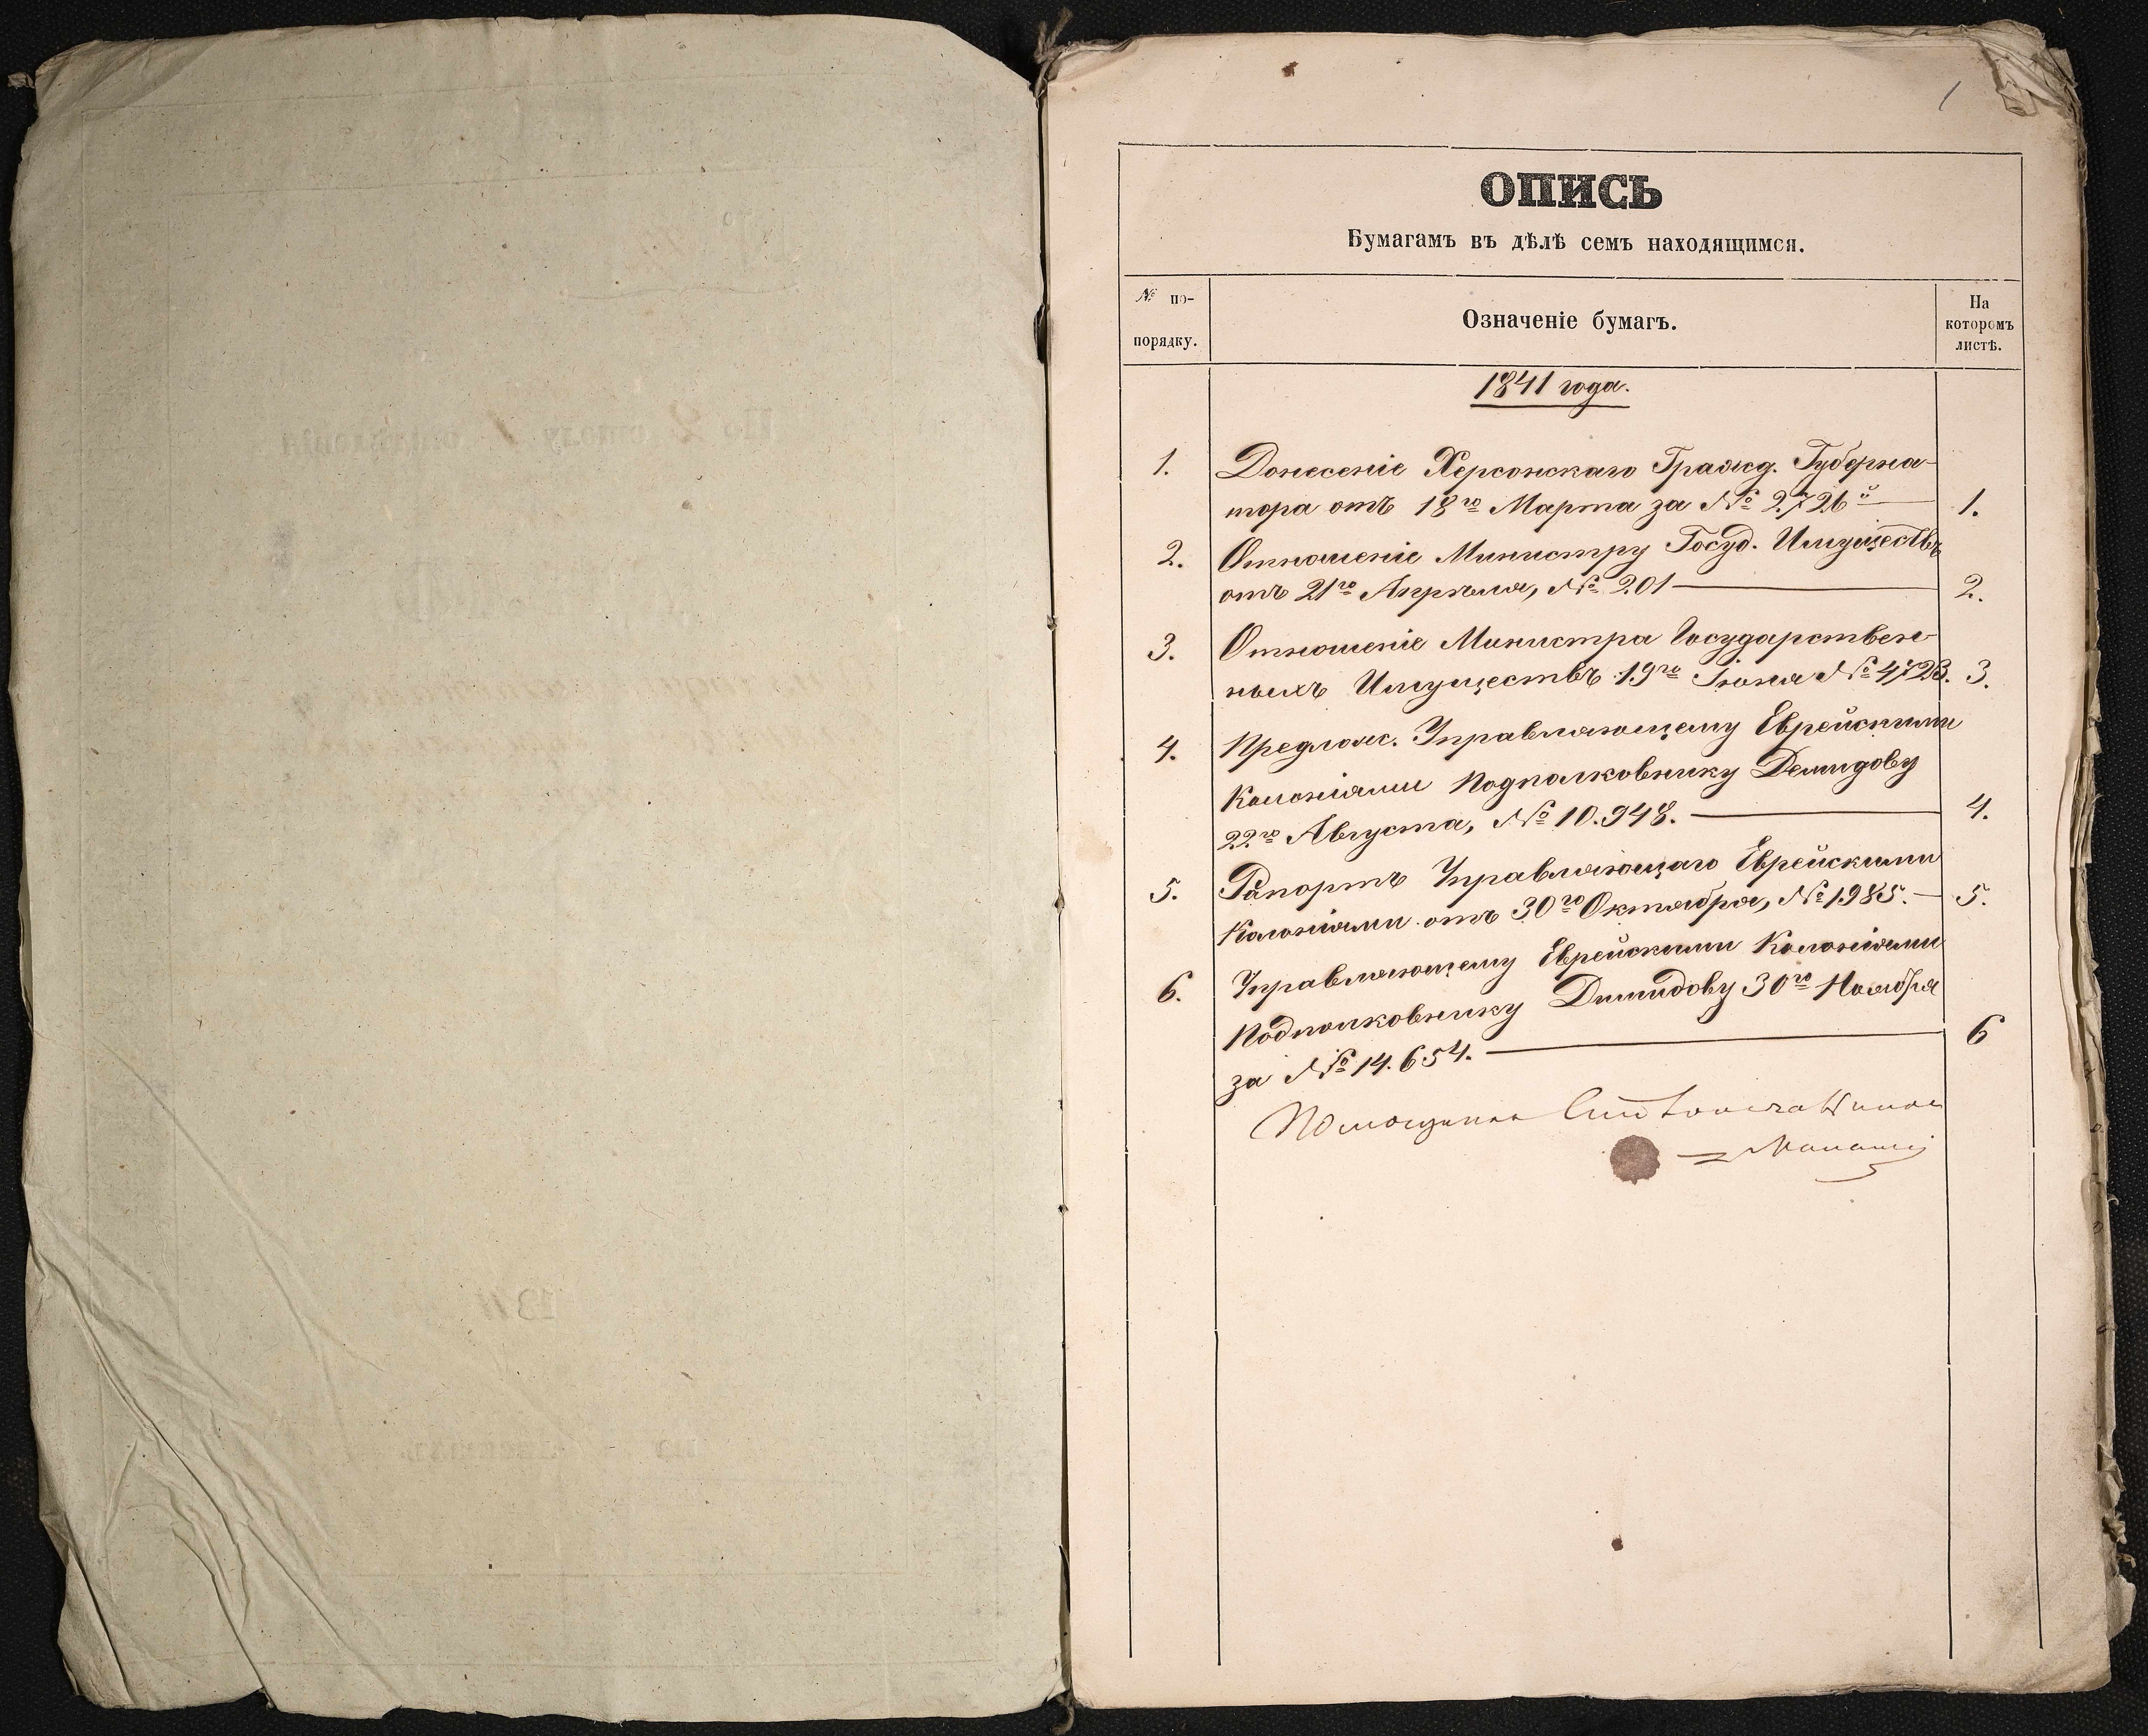 1
ОПИСЬ
Бумагамъ въ дѣлѣ семъ находящимся.
№ по-
порядку.
Означеніе бумагъ.
На
которомъ
листѣ.
1841 года.
1. Донесеніе Херсонскаго Гражд. Губерна-
тора отъ 18го Марта за № 2,726й 1.
2. Отношеніе Министру Госуд. Имуществъ
отъ 21го Апрѣля, № 201 2.
3. Отношеніе Министра Государствен-
ныхъ Имуществъ 19го Іюня № 4723. 3.
4. Предлож. Управляющему Еврейскими
Колоніями Подполковнику Демидову
22го Августа, № 10.948. 4.
5. Рапортъ Управляющаго Еврейскими
Колоніями отъ 30го Октября, № 1985. 5.
6. Управляющему Еврейскими Колоніями
Подполковнику Димидову 30го Ноября
за № 14.654. 6